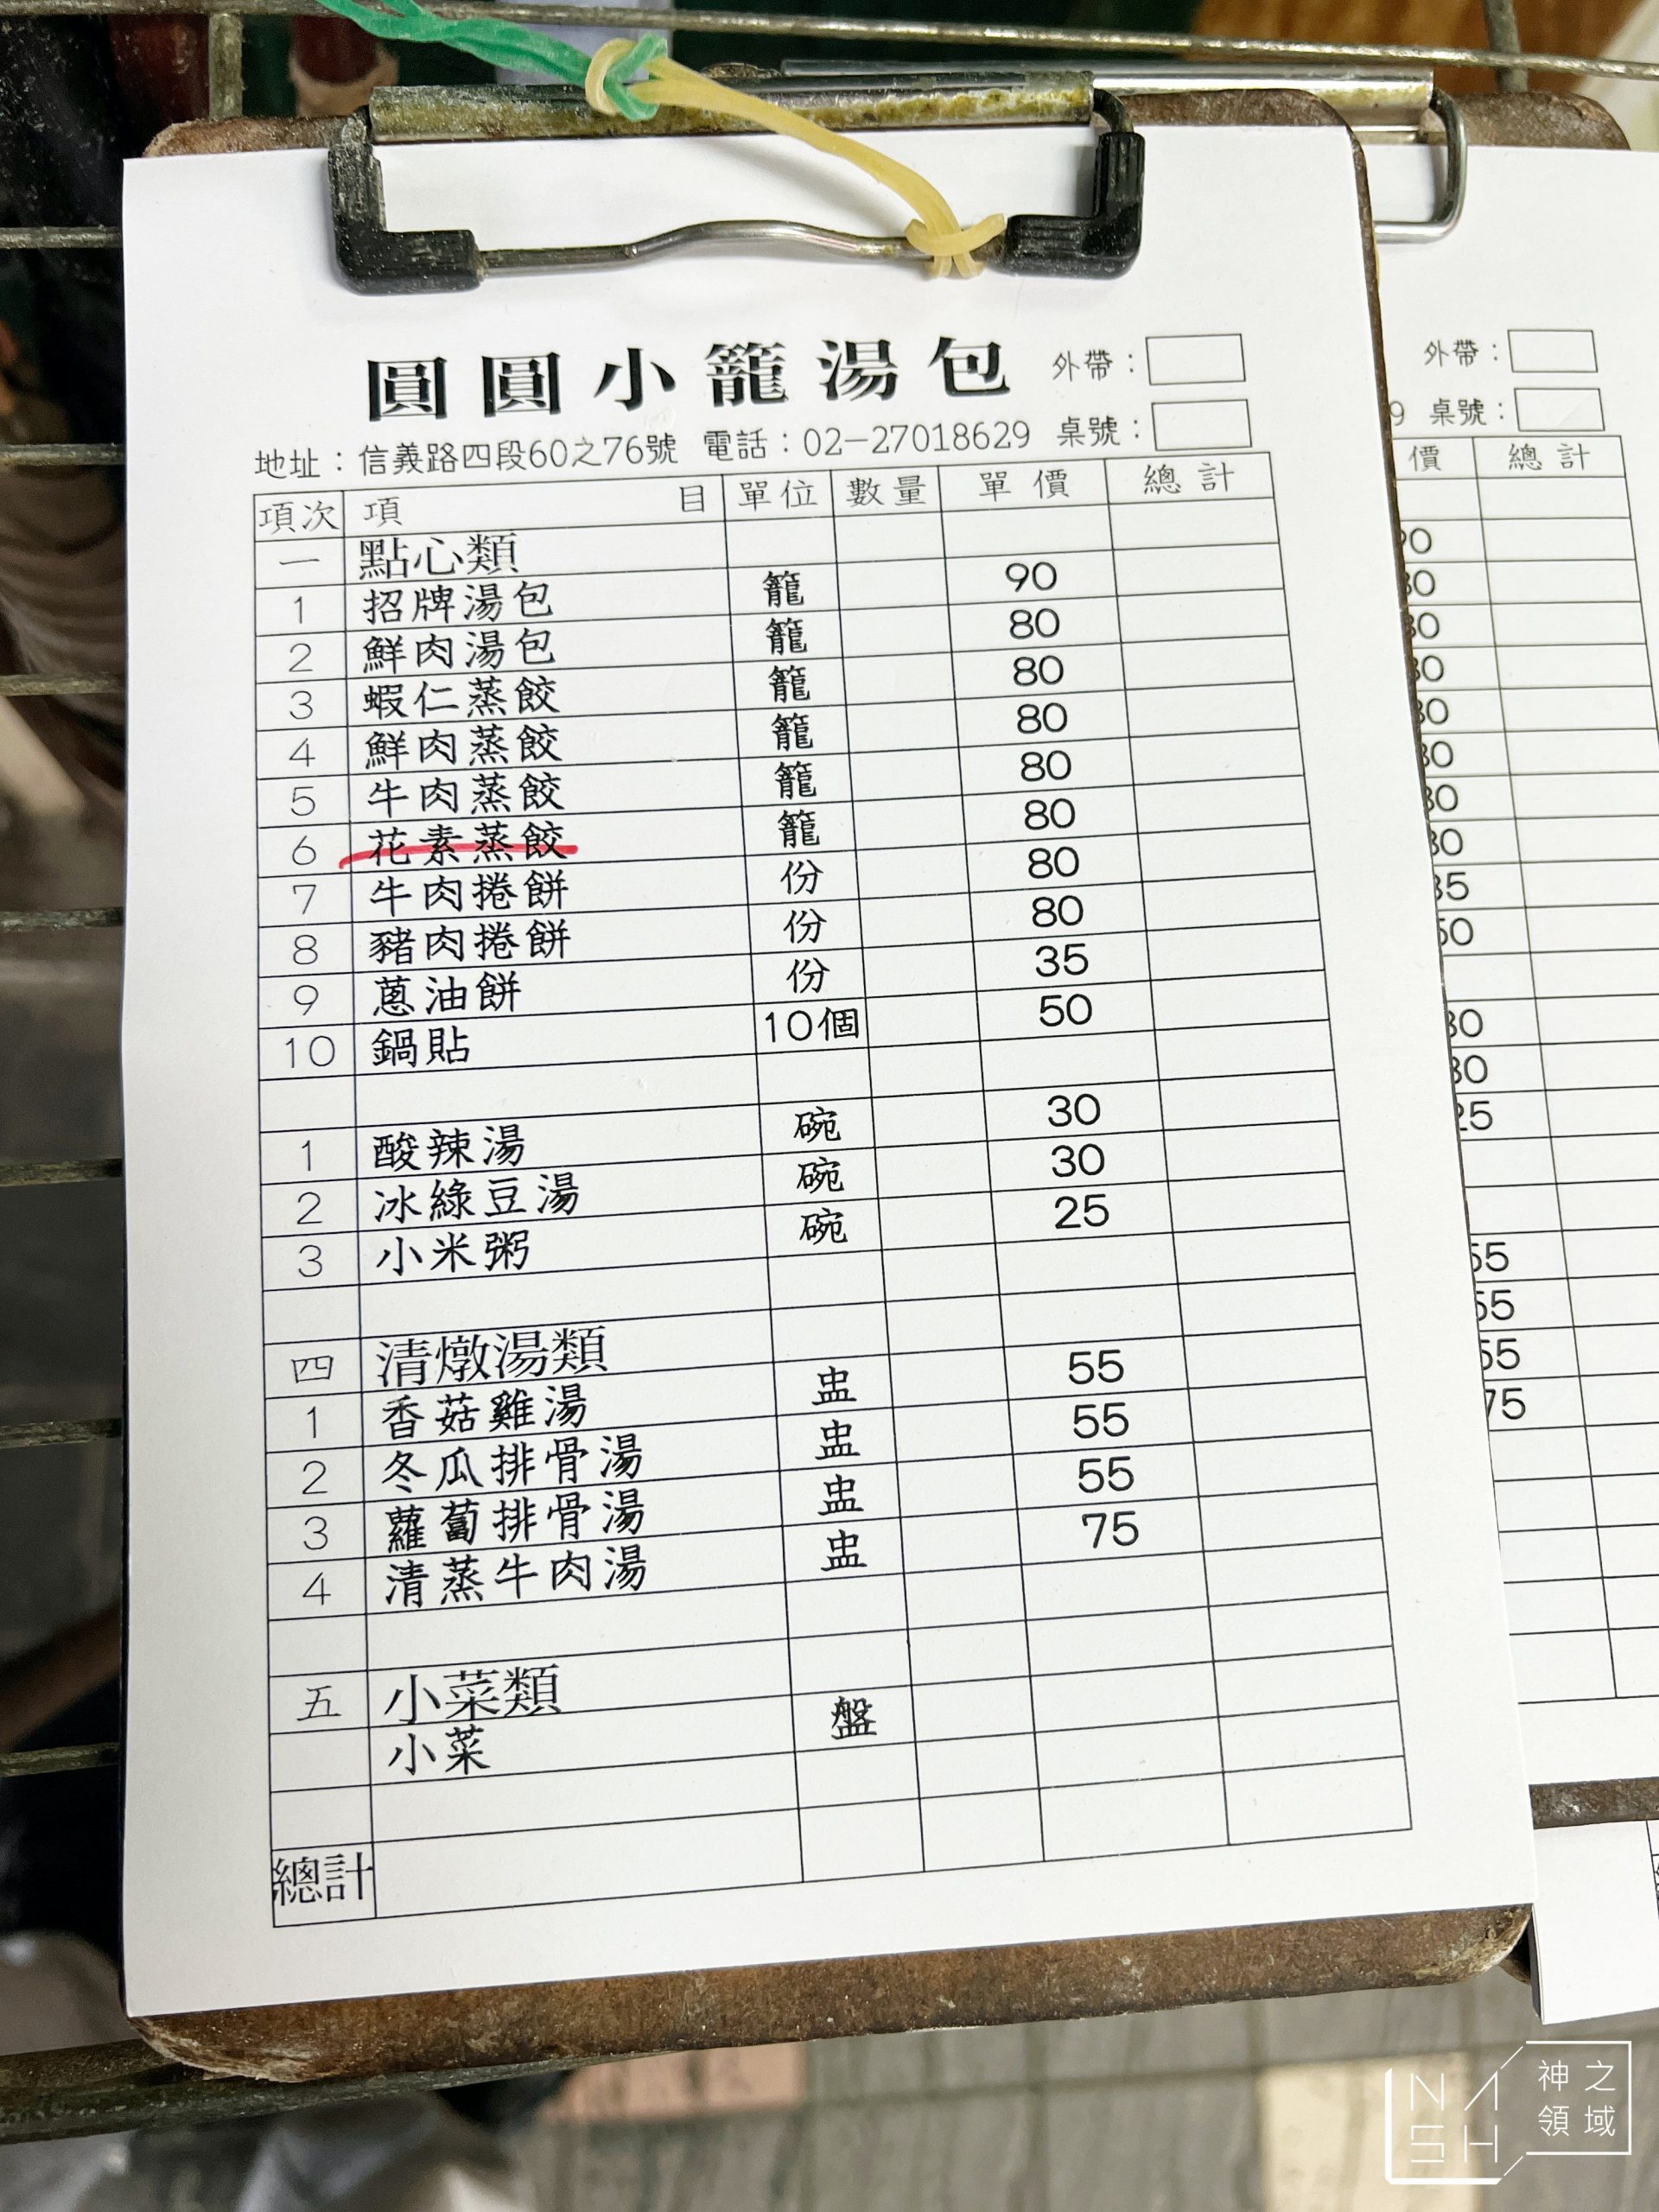 圓圓小籠湯包 外帶：
地址：信義路四段60之76號 電話：02-27018629 桌號：
項次 項目 單位 數量 單價 總計
一 點心類
1 招牌湯包 籠 90
2 鮮肉湯包 籠 80
3 蝦仁蒸餃 籠 80
4 鮮肉蒸餃 籠 80
5 牛肉蒸餃 籠 80
6 花素蒸餃 籠 80
7 牛肉捲餅 份 80
8 豬肉捲餅 份 80
9 蔥油餅 份 35
10 鍋貼 10個 50
1 酸辣湯 碗 30
2 冰綠豆湯 碗 30
3 小米粥 碗 25
四 清燉湯類
1 香菇雞湯 盅 55
2 冬瓜排骨湯 盅 55
3 蘿蔔排骨湯 盅 55
4 清蒸牛肉湯 盅 75
五 小菜類
小菜 盤
總計
外帶：
9 桌號：
價 總計
90
80
80
80
80
80
80
80
35
50
30
30
25
55
55
55
75
NASH 神之領域